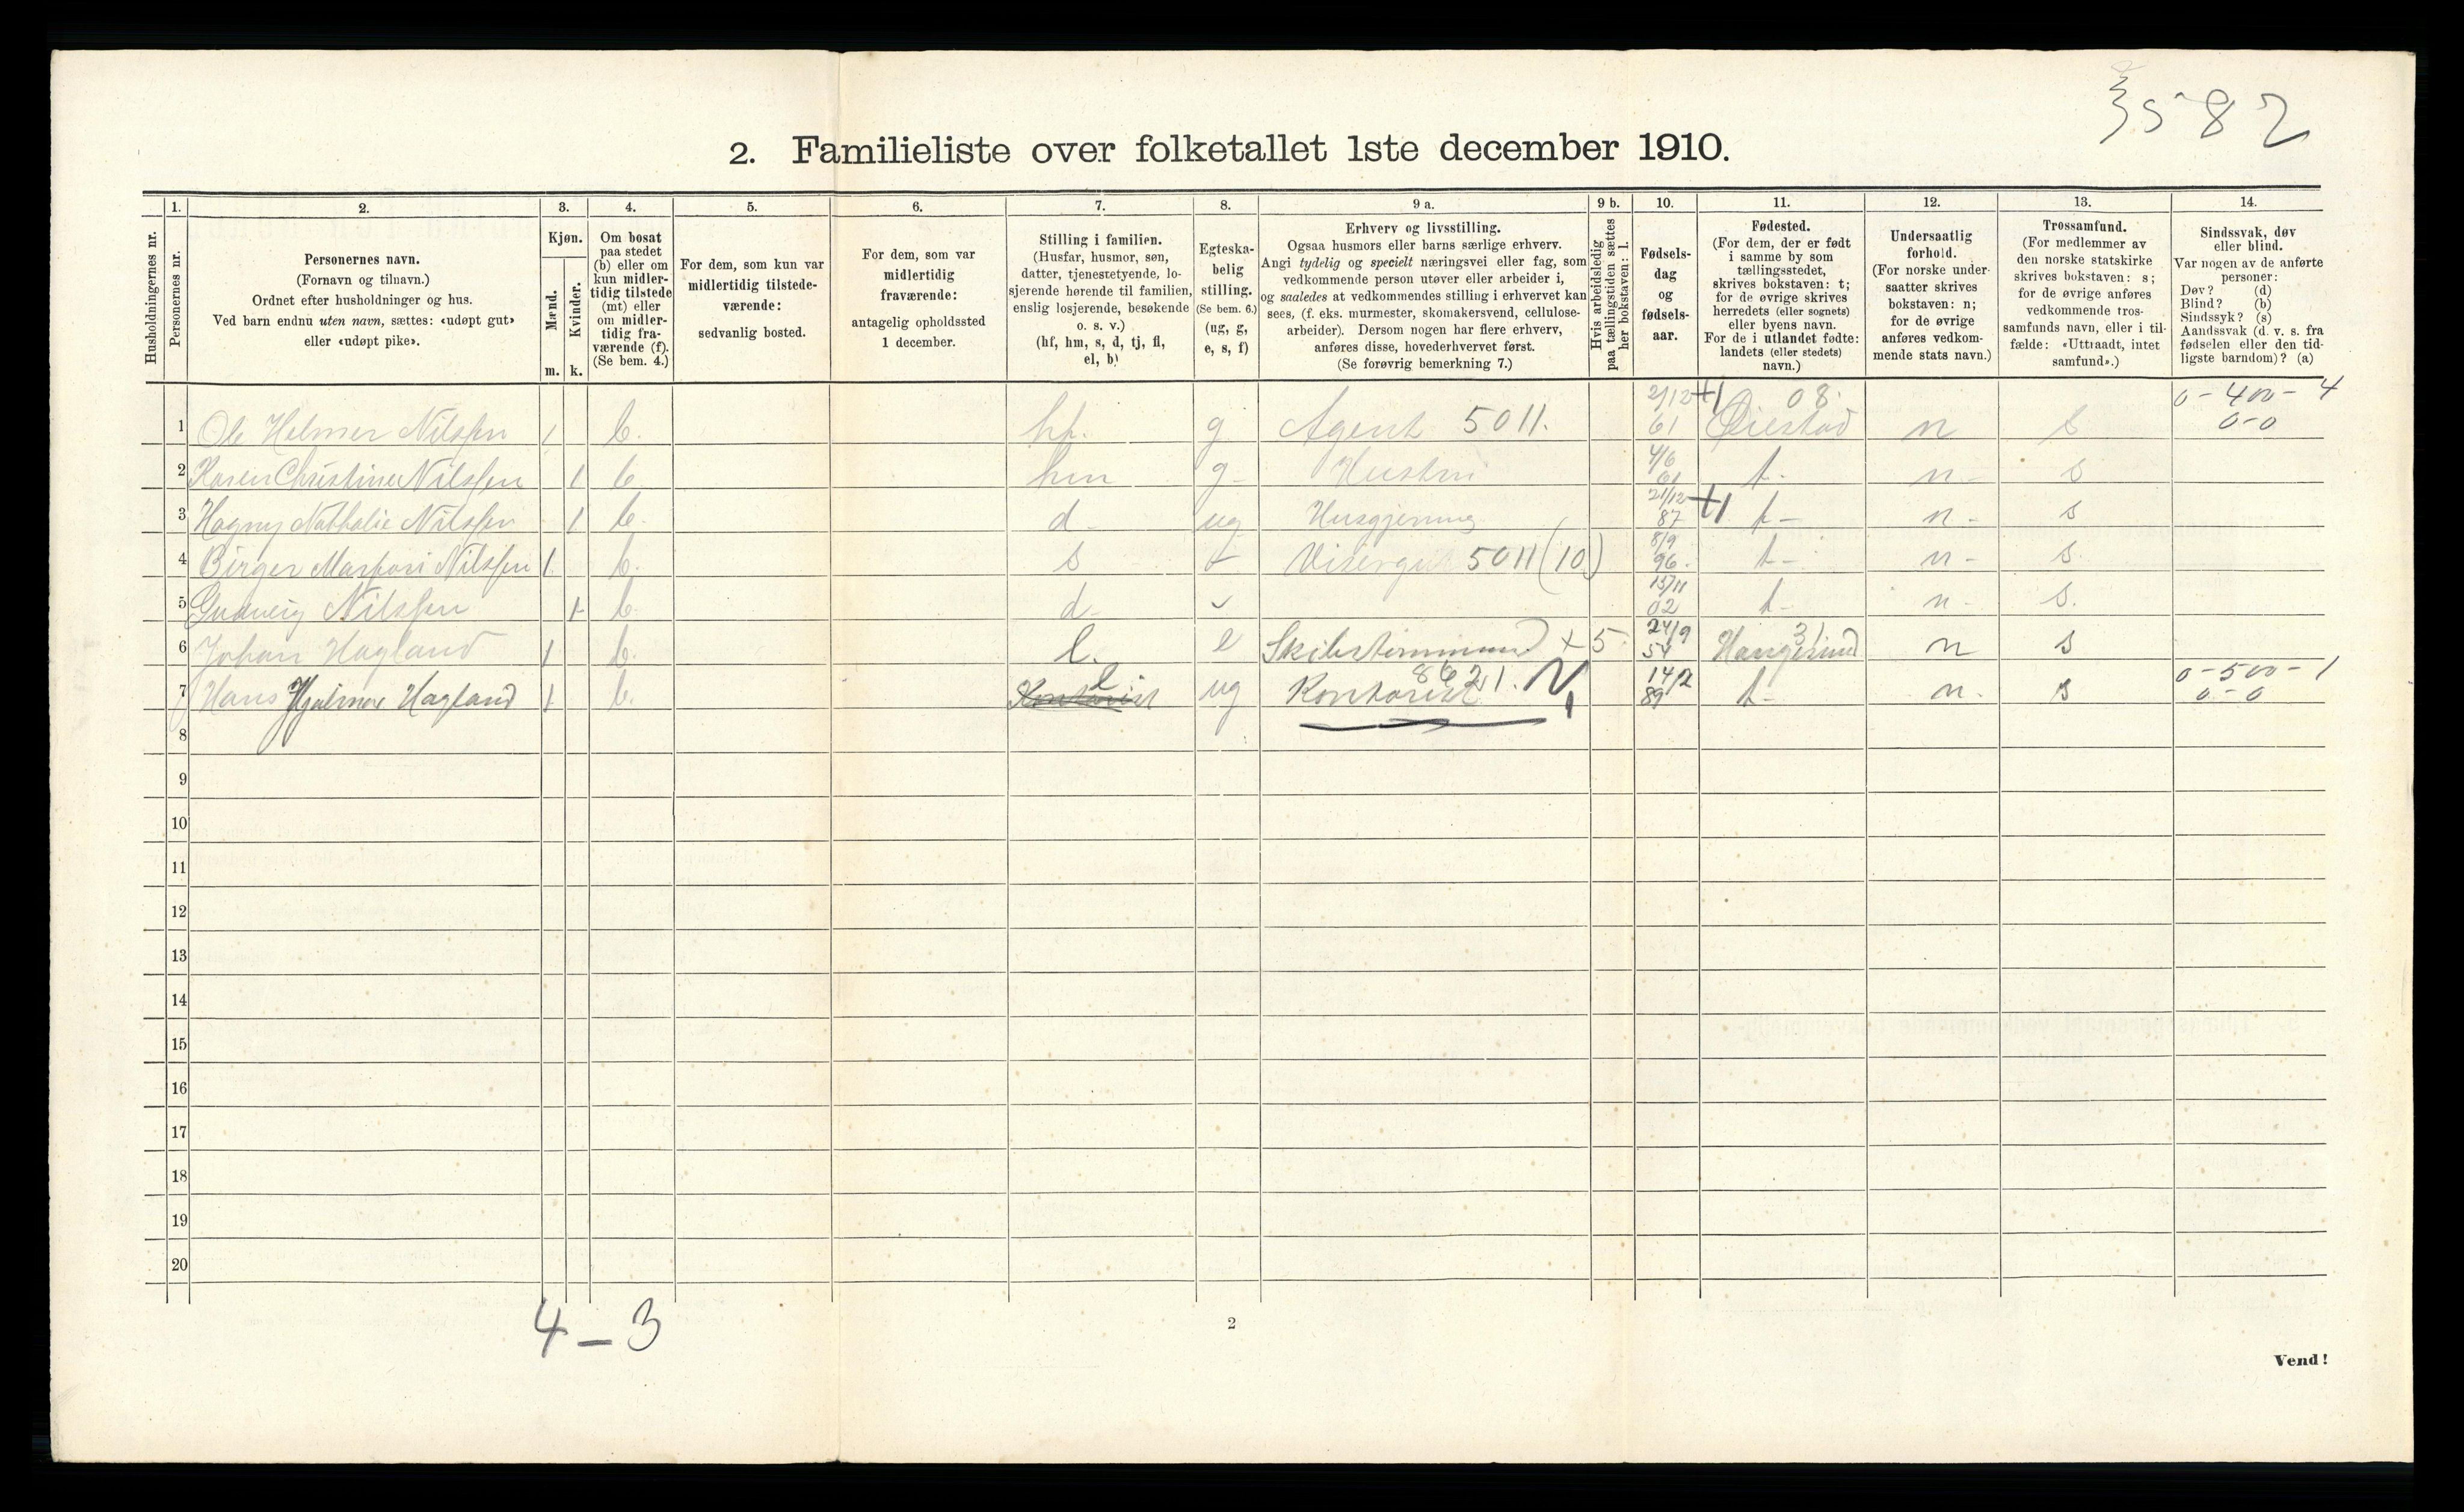 3582
2. Familieliste over folketallet 1ste december 1910.
1. 2. 3. 4. 5. 6. 7. 8. 9 a. 9 b. 10. 11. 12. 13. 14.
Husholdningernes nr.
Personernes nr.
Personernes navn.
(Fornavn og tilnavn.)
Ordnet efter husholdninger og hus.
Ved barn endnu uten navn, sættes: «udøpt gut»
eller «udøpt pike».
Kjøn.
Mænd.
Kvinder.
m. k.
Om bosat
paa stedet
(b) eller om
kun midler-
tidig tilstede
(mt) eller
om midler-
tidig fra-
værende (f).
(Se bem. 4.)
For dem, som kun var
midlertidig tilstede-
værende:
sedvanlig bosted.
For dem, som var
midlertidig
fraværende:
antagelig opholdssted
1 december.
Stilling i familien.
(Husfar, husmor, søn,
datter, tjenestetyende, lo-
sjerende hørende til familien,
enslig losjerende, besøkende
o. s. v.)
(hf, hm, s, d, tj, fl,
el, b)
Egteska-
belig
stilling.
(Se bem. 6.)
(ug, g,
e, s, f)
Erhverv og livsstilling.
Ogsaa husmors eller barns særlige erhverv.
Angi tydelig og specielt næringsvei eller fag, som
vedkommende person utøver eller arbeider i,
og saaledes at vedkommendes stilling i erhvervet kan
sees, (f. eks. murmester, skomakersvend, cellulose-
arbeider). Dersom nogen har flere erhverv,
anføres disse, hovederhvervet først.
(Se forøvrig bemerkning 7.)
Hvis arbeidsledig
paa tællingstiden sættes
her bokstaven: l.
Fødsels-
dag
og
fødsels-
aar.
Fødested.
(For dem, der er født
i samme by som
tællingsstedet,
skrives bokstaven: t;
for de øvrige skrives
herredets (eller sognets)
eller byens navn.
For de i utlandet fødte:
landets (eller stedets)
navn.)
Undersaatlig
forhold.
(For norske under-
saatter skrives
bokstaven: n;
for de øvrige
anføres vedkom-
mende stats navn.)
Trossamfund.
(For medlemmer av
den norske statskirke
skrives bokstaven: s;
for de øvrige anføres
vedkommende tros-
samfunds navn, eller i til-
fælde: «Uttraadt, intet
samfund».)
Sindssvak, døv
eller blind.
Var nogen av de anførte
personer:
Døv? (d)
Blind? (b)
Sindssyk? (s)
Aandssvak (d. v. s. fra
fødselen eller den tid-
ligste barndom)? (a)
1 Ole Helmer Nilssen 1 b. hf. g Agent 5011. 2/12 61 +1 08. Øiestad n s 0-400-4 0-0
2 Karen Christine Nilssen 1 b hm g- Hustru 4/6 61 t- n- s
3 Hagny Nathalie Nilssen 1 b. d- ug Husgjerning 21/12 87 +1 t- n- s
4 Birger Nilssen 1. b. s Visergut 5011 (10) 8/9 96. t- n- s.
5 Gudveig Nilssen 1 b d- 15/11 02 t- n- s.
6 Johan Hagland 1 b. l. e Skibstømmermand x 5 24/9 54 31 Haugesund n s
7 Hans Hjalmar Hagland 1 b. Kontorist l ug Kontorist 8621. 14/2 89 t- n. s 0-500-1 0-0
8
9
10
11
12
13
14
15
16
17
18
19
20
4-3
2
Vend!